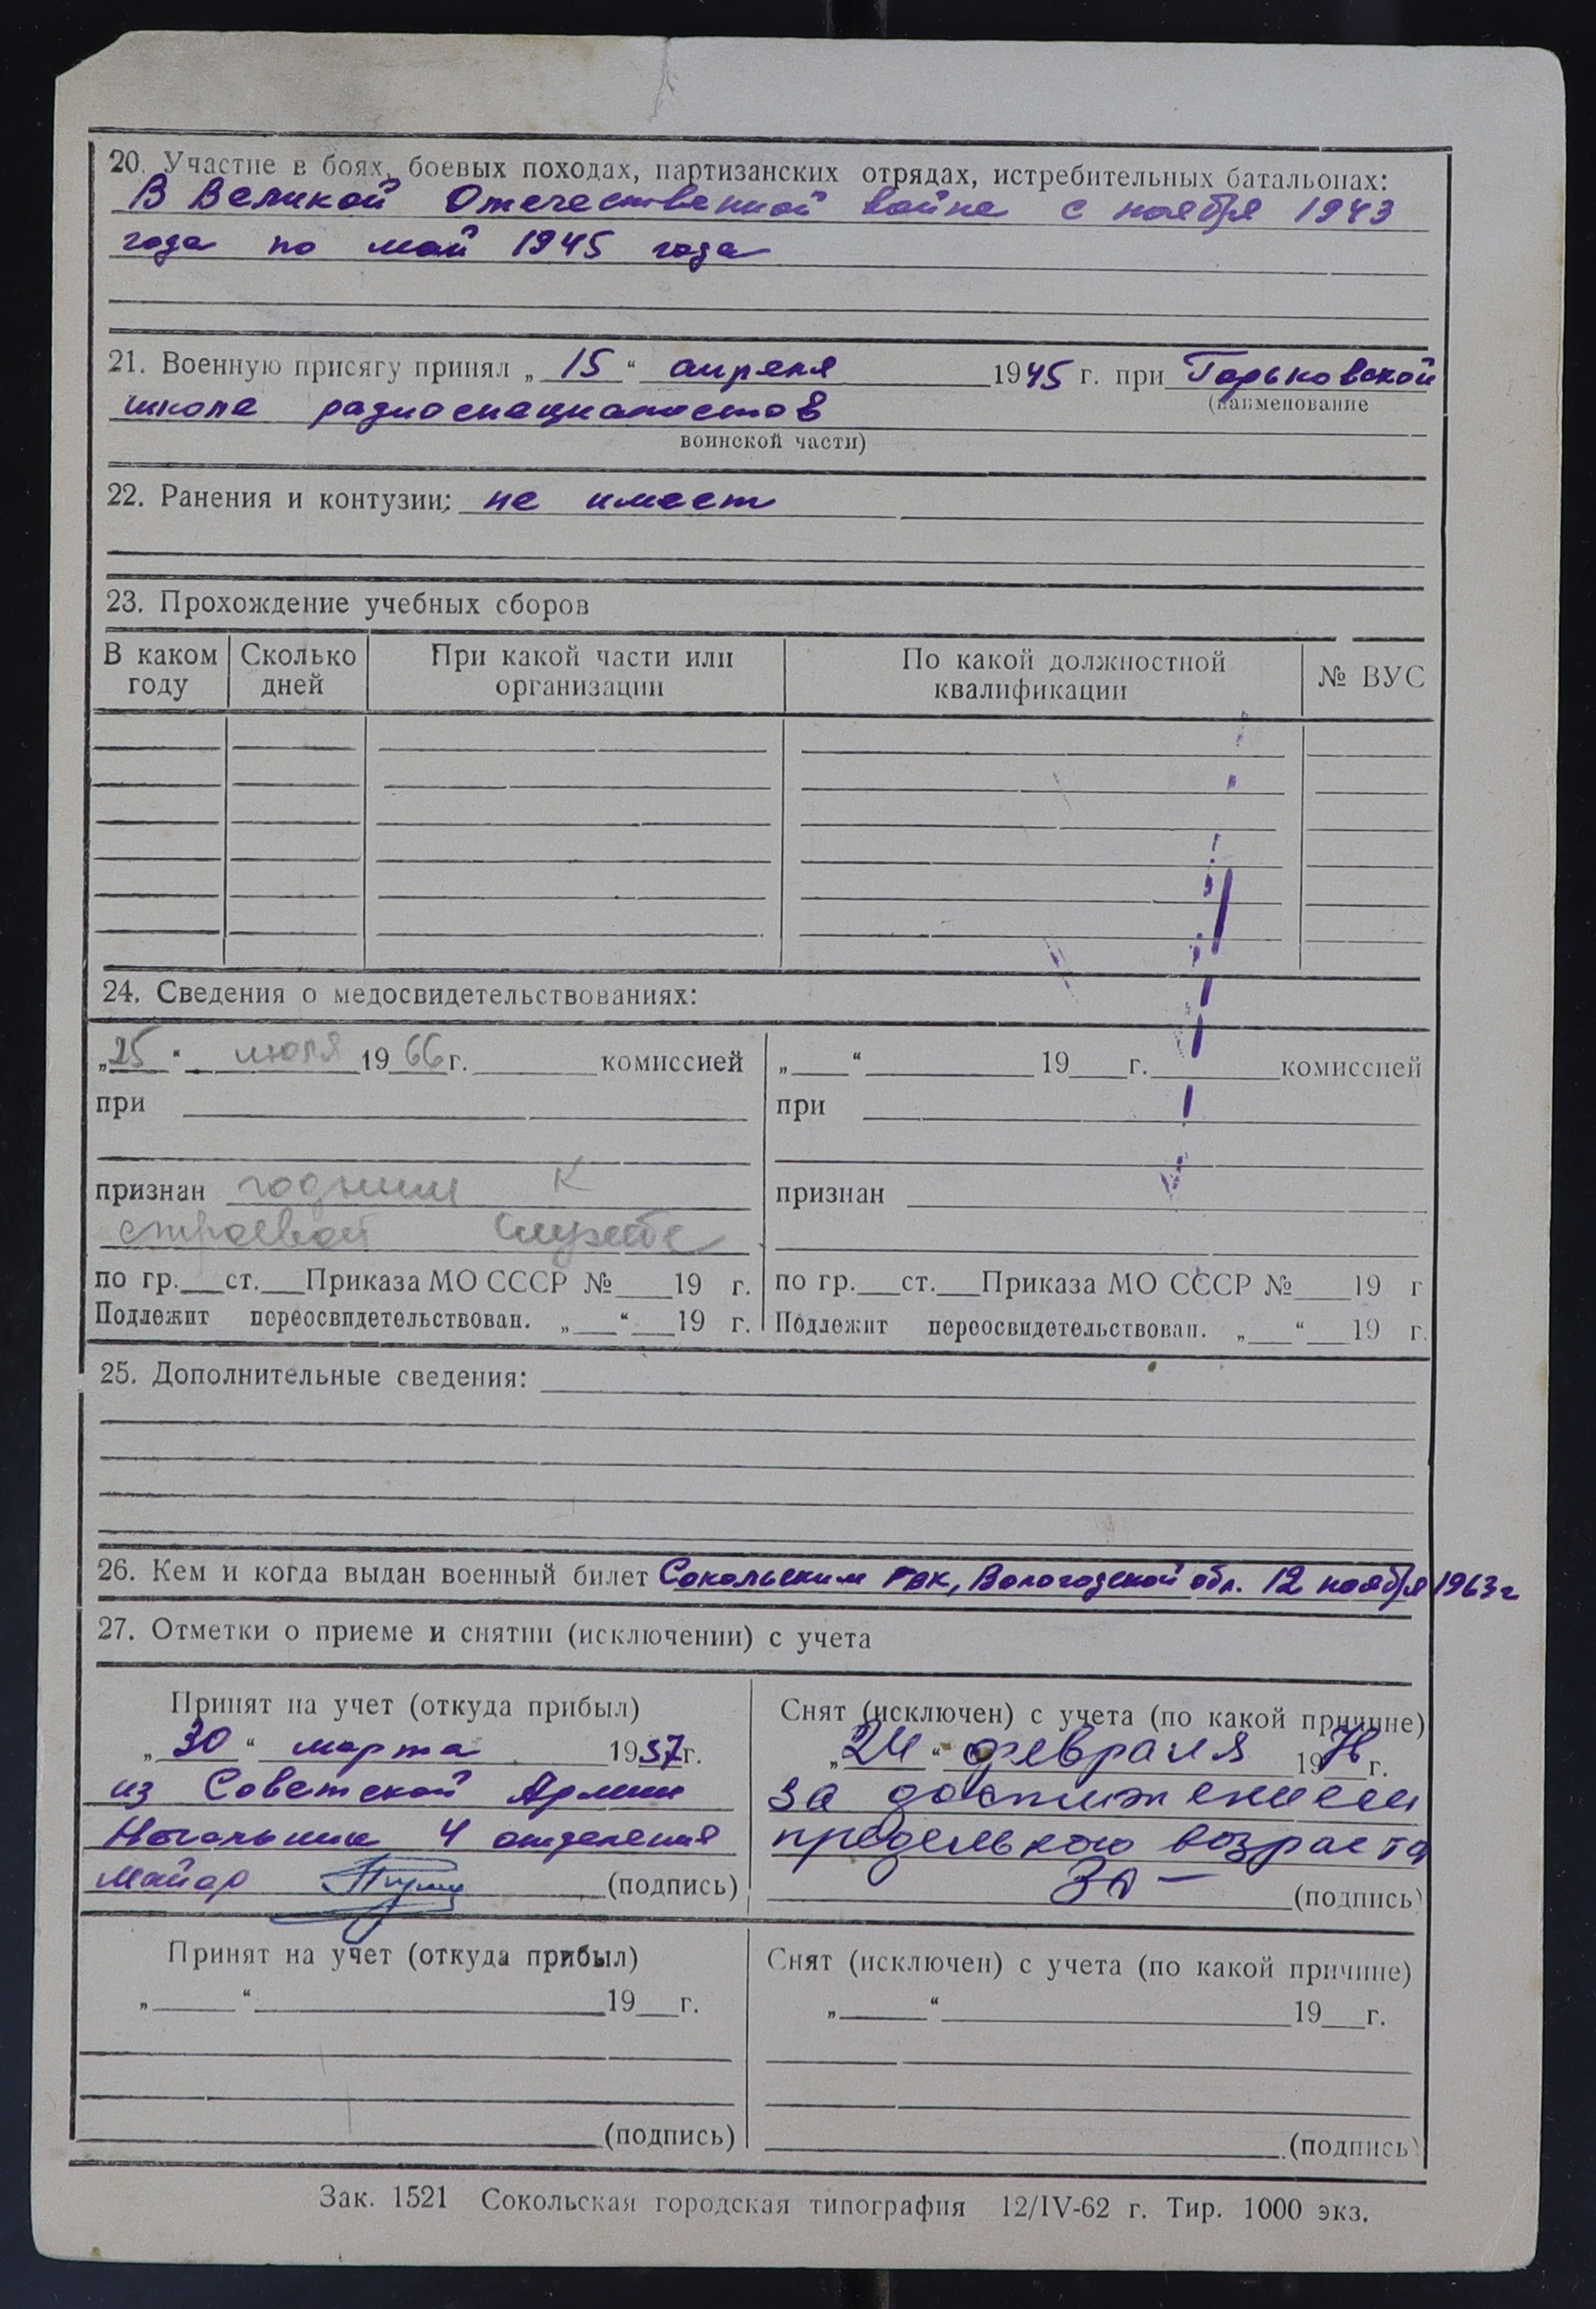 20. Участие в боях, боевых походах, партизанских отрядах, истребительных батальонах:
В Великой Отечественной войне с ноября 1943
года по май 1945 года
21. Военную присягу принял „15“ апреля 1945 г. при Горьковской
(наименование
школе радиоспециалистов
воинской части)
22. Ранения и контузии: не имеет
23. Прохождение учебных сборов
В каком году | Сколько дней | При какой части или организации | По какой должностной квалификации | № ВУС
24. Сведения о медосвидетельствованиях:
„25“ июля 1966 г. ____ комиссией | „__“ ____ 19__ г. ____ комиссией
при | при
признан годным к | признан
строевой службе
по гр.__ст.__Приказа МО СССР №__19 г. | по гр.__ст.__Приказа МО СССР №__19 г
Подлежит переосвидетельствован. „__“__19 г. | Подлежит переосвидетельствован. „__“__19 г.
25. Дополнительные сведения:
26. Кем и когда выдан военный билет Сокольским ГВК, Вологодской обл. 12 ноября 1963 г
27. Отметки о приеме и снятии (исключении) с учета
Принят на учет (откуда прибыл) | Снят (исключен) с учета (по какой причине)
„30“ марта 1957 г. | „24“ февраля 1976 г.
из Советской Армии | за достижением
Начальник 4 отделения | предельного возраста
майор (подпись) | (подпись)
Принят на учет (откуда прибыл) | Снят (исключен) с учета (по какой причине)
„__“ ____ 19__ г. | „__“ ____ 19__ г.
(подпись) | (подпись)
Зак. 1521 Сокольская городская типография 12/IV-62 г. Тир. 1000 экз.